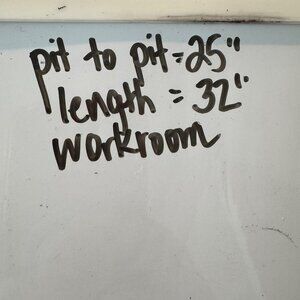 pit to pit=25"
length = 32"
workroom